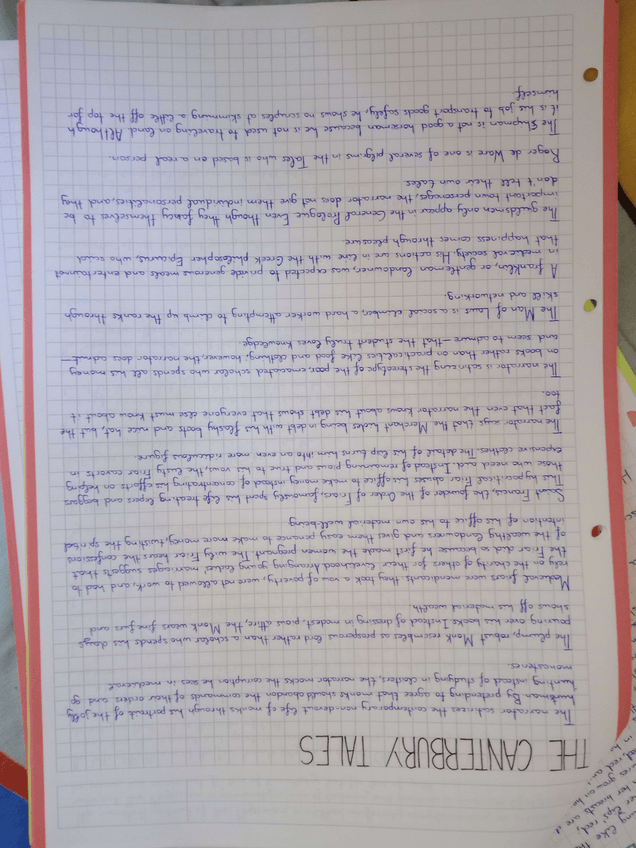 THE CANTERBURY TALES
The narrator satirizes the contemporary non-devout life of monks through his portrait of the jolly
huntsman. By pretending to agree that monks should abandon the commands of their orders and go
hunting instead of studying in cloisters, the narrator mocks the corruption he sees in medieval
monasteries.
The plump, robust Monk resembles as prosperous lord rather than a scholar who spends his days
pouring over his books. Instead of dressing in modest, pious attire, the Monk wears fine furs and
shows off his material wealth.
Medieval friars were mendicants: they took a vow of poverty, were not allowed to work, and had to
rely on the charity of others for their livelihood. Arranging young ladies' marriages suggests that
the Friar did so because he first made the women pregnant. The wily Friar hears the confessions
of the wealthy landowners and gives them easy penance to make more money, twisting the spirited
intention of his office to his own material well-being
Saint Francis, the founder of the Order of Friars, famously spent his life treating lepers and beggars
This hypocritical Friar abuses his office to make money instead of concentrating his efforts on helping
those who need aid. Instead of remaining pious and true to his vows, the lusty Friar cavorts in
expensive clothes. The detail of his lisp turns him into an even more ridiculous figure.
The narrator says that the Merchant hides being in debt with his flashy boots and nice hat, but the
fact that even the narrator knows about his debt shows that everyone else must know about it
too.
The narrator is satirizing the stereotype of the poor, emaciated scholar who spends all his money
on books rather than on practicalities like food and clothing; however, the narrator does admit—
and seem to admire—that the student truly loves knowledge.
The Man of Laws is a social climber, a hard worker attempting to climb up the ranks through
skill and networking.
A franklin, or gentleman landowner, was expected to provide generous meals and entertainment
in medieval society. His actions are in line with the Greek philosopher Epicurus, who said
that happiness comes through pleasure.
The guildsmen only appear in the General Prologue. Even though they fancy themselves to be
important town personages, the narrator does not give them individual personalities, and they
don't tell their own tales
Roger de Ware is one of several pilgrims in the Tales who is based on a real person.
The Shipman is not a good horseman because he is not used to traveling on land. Although
it is his job to transport goods safely, he shows no scruples at skimming a little off the top for
himself.